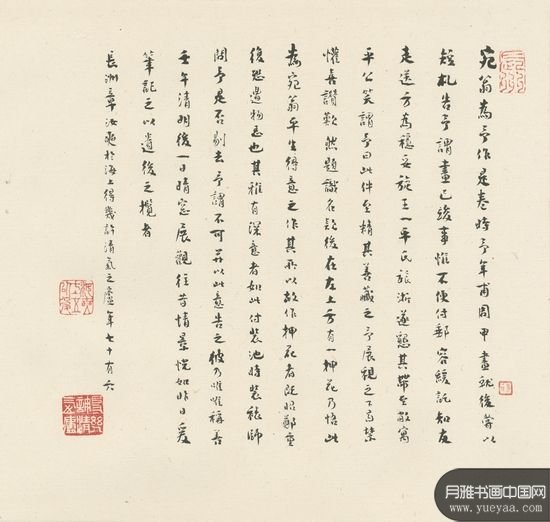 宛翁為予作是卷時予年甫周甲畫就後等以
短札告予謂畫已竣事惟不便付郵容緩託知友
走送方為穩妥旋王一平氏旅浙遂懇其帶至敝寓
平公笑謂予曰此件至精其善藏之予展觀之下禁
懽喜讚歎然題識名款後在左上方有一押花乃悟此
為宛翁平生得意之作其所以故作押花者既昭鄭重
復恐遺忘也其雅有深意者如此付裝池時裝裱師
問予是否剔去予謂不可并以此意告之彼乃唯唯稱善
壬午清明後一日晴窗展觀往昔情景恍如昨日爰
筆記之以遺後之攬者
長洲章汝奭於海上得幾許清氣之廬年七十有六
月雅书画中国网
www.yueyaa.com